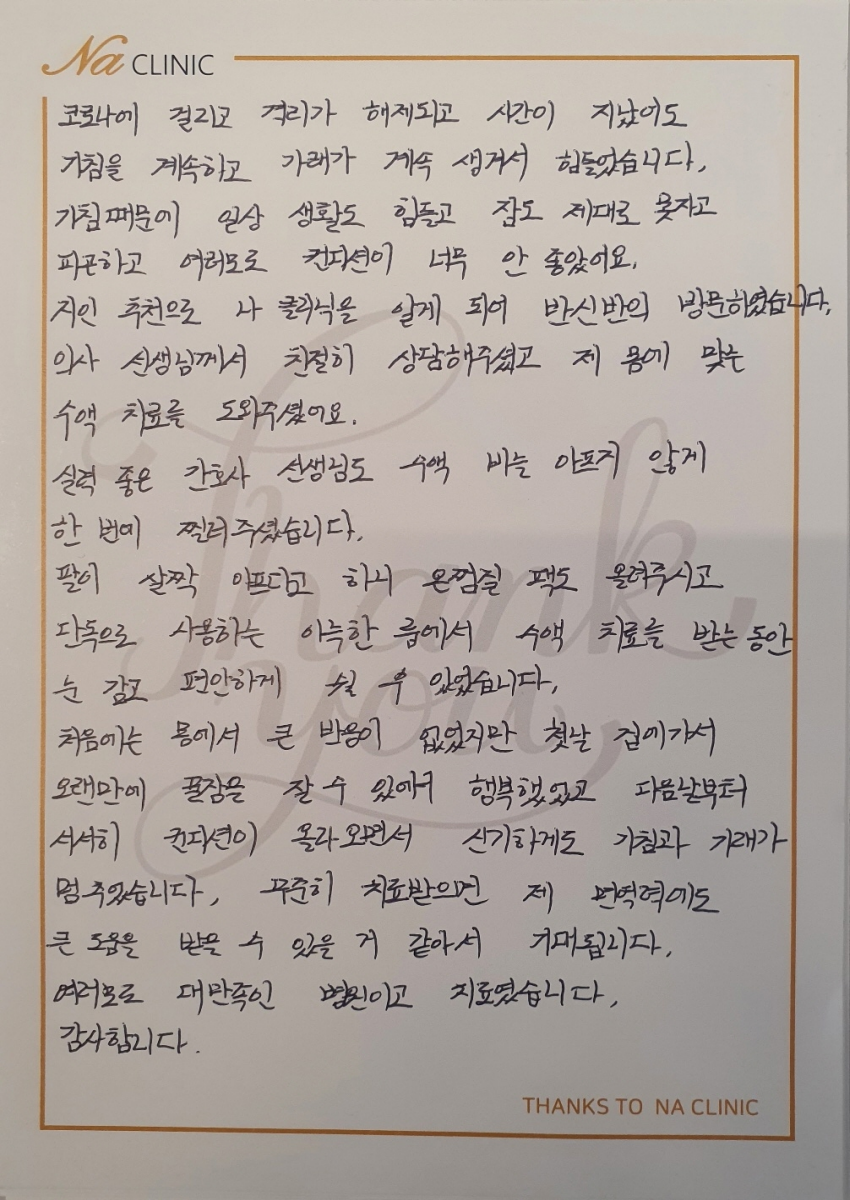 Na CLINIC
코로나에 걸리고 격리가 해제되고 시간이 지났어도
기침을 계속하고 가래가 계속 생겨서 힘들었습니다.
기침때문에 일상 생활도 힘들고 잠도 제대로 못자고
피곤하고 여러모로 컨디션이 너무 안 좋았어요.
지인 추천으로 나 클리닉을 알게 되어 반신반의 방문하였습니다.
의사 선생님께서 친절히 상담해주셨고 제 몸에 맞는
수액 치료를 도와주셨어요.
실력 좋은 간호사 선생님도 수액 바늘 아프지 않게
한 번에 찔러주셨습니다.
팔이 살짝 아프다고 하니 온찜질 팩도 올려주시고
단독으로 사용하는 아늑한 룸에서 수액 치료를 받는 동안
눈 감고 편안하게 쉴 수 있었습니다.
처음에는 몸에서 큰 반응이 없었지만 첫날 집에가서
오랜만에 꿀잠을 잘 수 있어서 행복했었고 다음날부터
서서히 컨디션이 올라오면서 신기하게도 기침과 가래가
멈추었습니다. 꾸준히 치료받으면 제 면역력에도
큰 도움을 받을 수 있을 거 같아서 기대됩니다.
여러모로 대만족인 병원이고 치료였습니다.
감사합니다.
Thank you
THANKS TO NA CLINIC